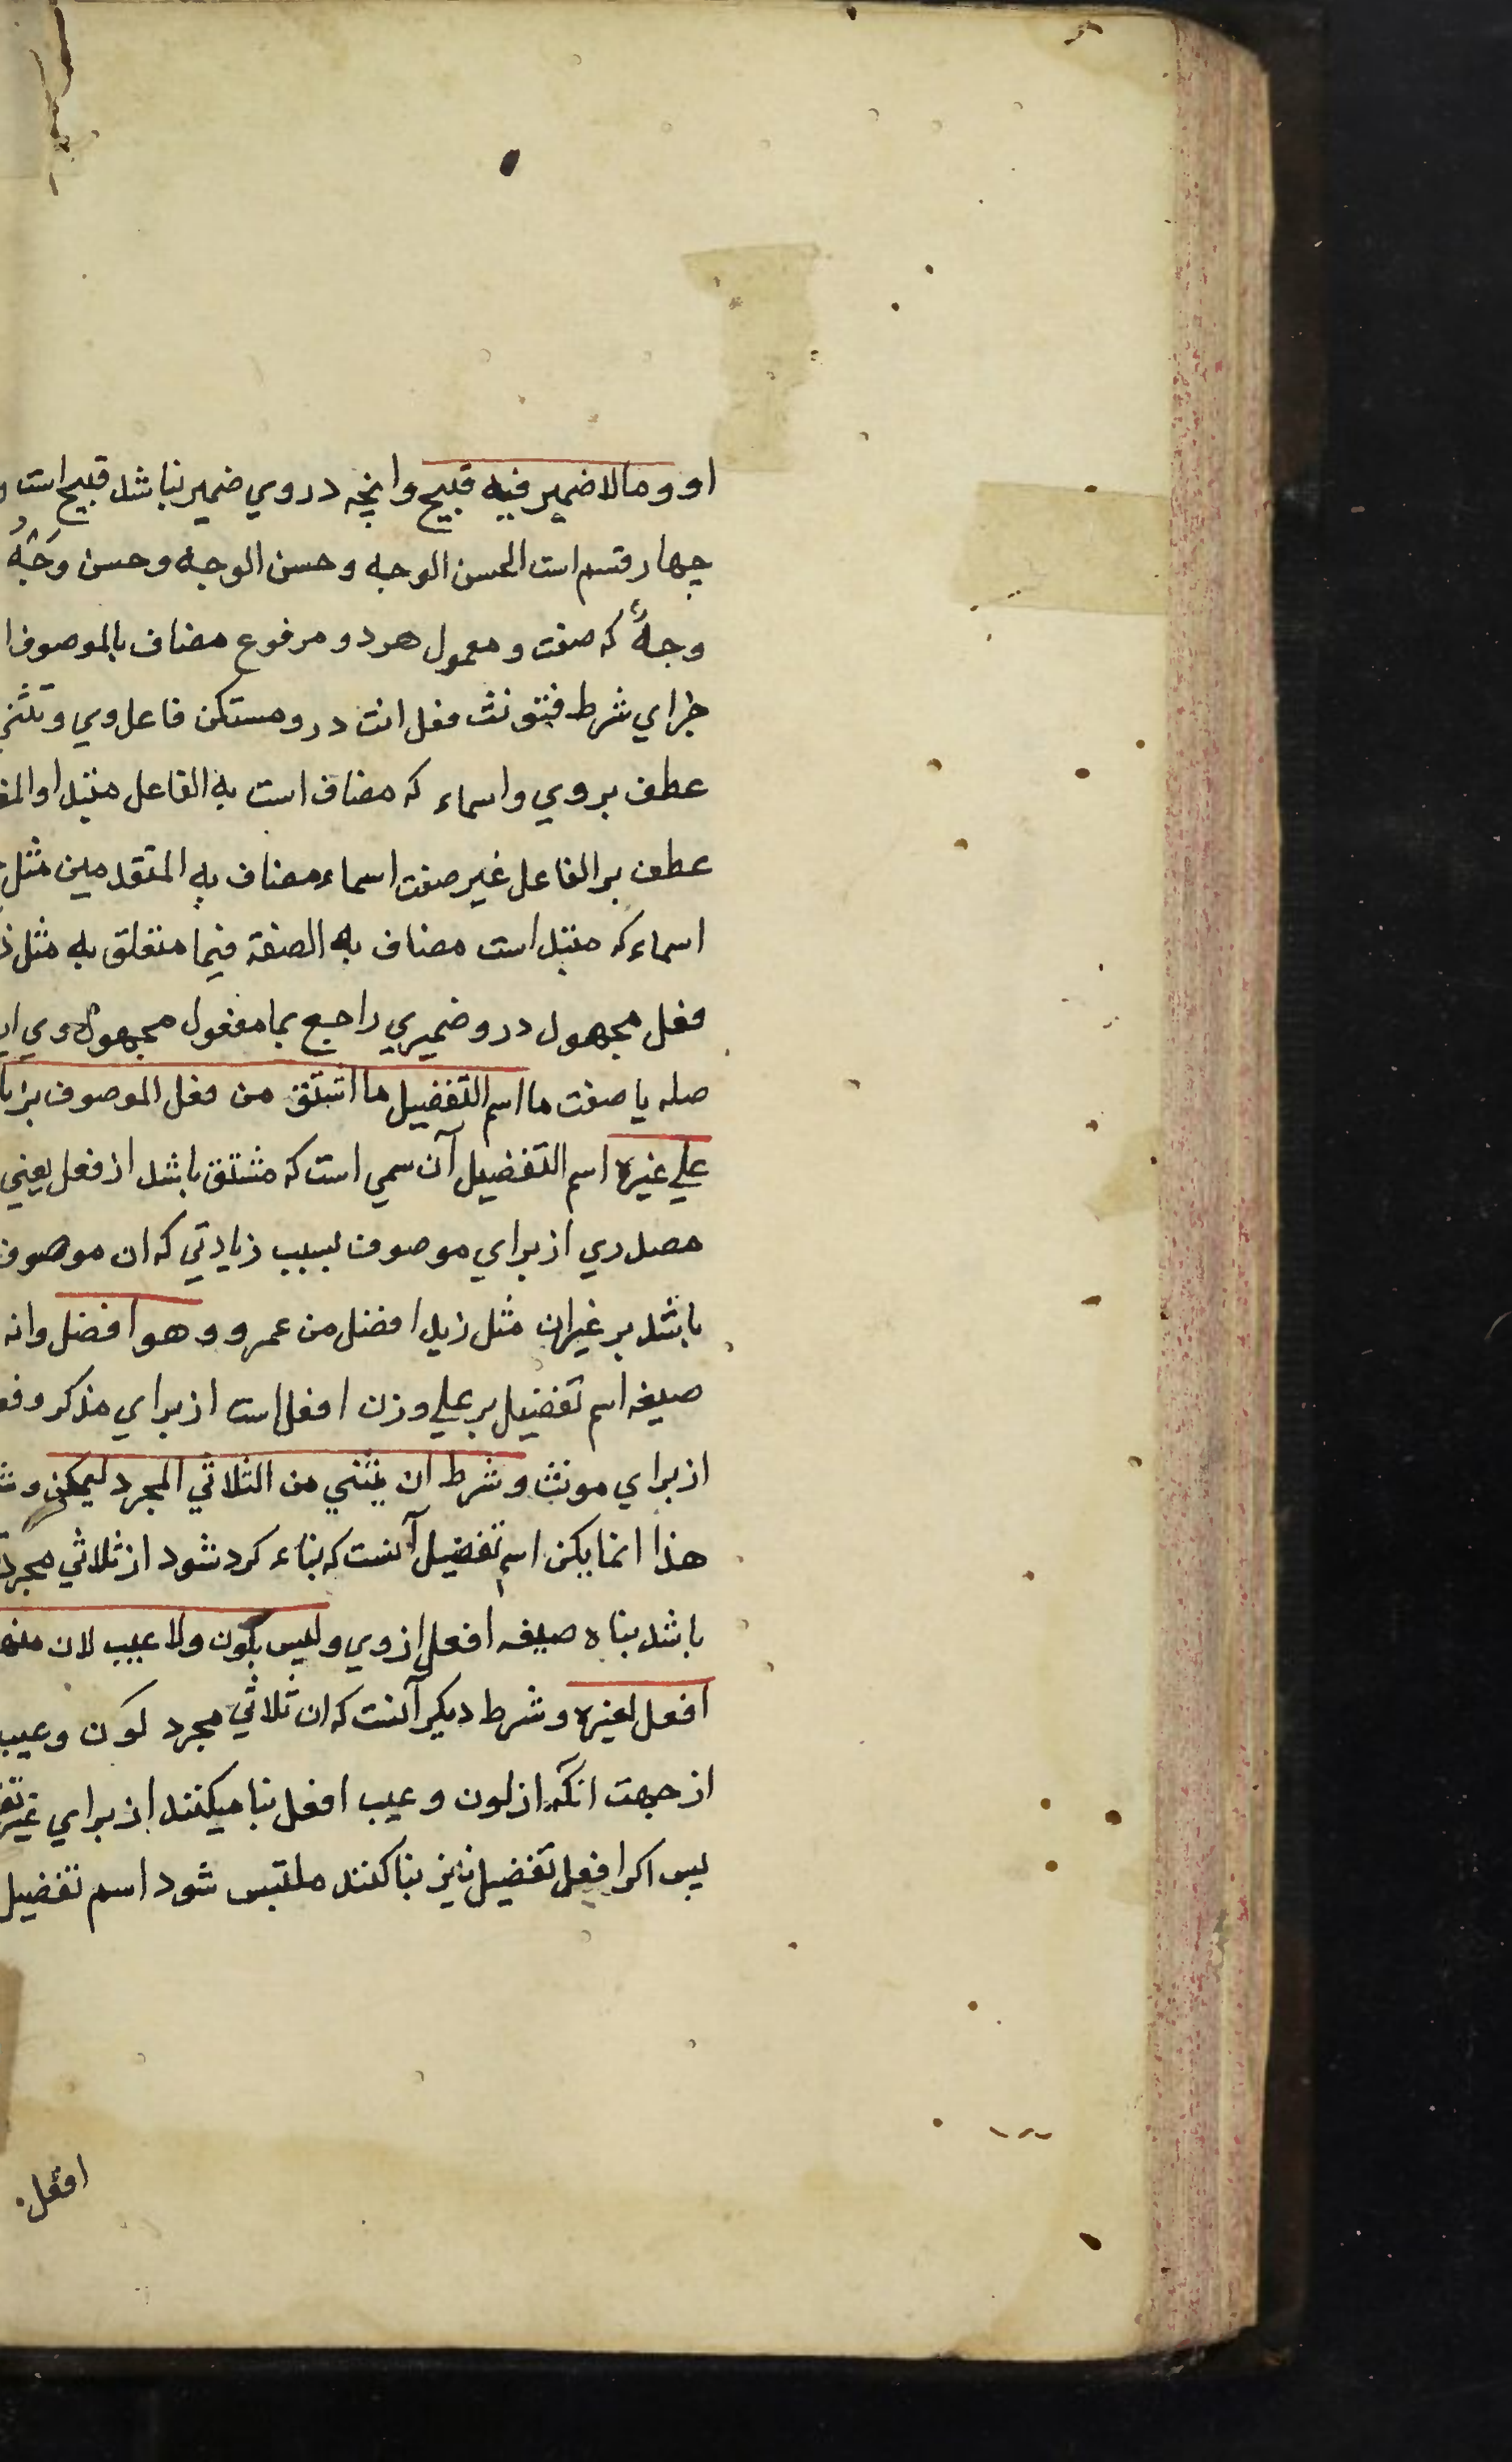 او وما لا ضمير فيه قبيح وانچه در وي ضمير نباشد قبيح است و
چهار قسم است الحسن الوجه وحسن الوجه وحسن وَجْهُ
وجهٌ که صفت و معمول هر دو مرفوع مضاف بالموصوف ا
جزاي شرط فتونث فعل انت در و مستكن فاعل وي وتثني
عطف بر وي واسماء که مضاف است به الفاعل مبتدا والمف
عطف بر الفاعل غير صفت اسماء مضاف به المتقدمين مثل
اسماء که مبتدا است مضاف به الصفة فيما متعلق به مثل
فعل مجهول در و ضميري راجع بما مفعول مجهول وي
صله يا صفت ما اسم التفضيل ما اشتق من فعل الموصوف بزيا
علي غيره اسم التفضيل آن سمي است که مشتق باشد از فعل يعني
مصدري از براي موصوف بسبب زيادتي که ان موصوف
باشد بر غيران مثل زيد افضل من عمرو وهو افضل وانه
صيغه اسم تفضيل بر علي وزن افعل است از براي مذكر وفع
از براي مونث وشرط ان يثني من الثلاثي المجرد ليمكن وش
هذا انما يكن اسم تفضيل آنست که بناء كرد شود از ثلاثي مجرد
باشد بناه صيغه افعل از وي وليس بلون ولا عيب لان منهما
افعل لغيره وشرط ديكر آنست که ان ثلاثي مجرد لون وعيب
از جهت انکه از لون وعيب افعل بنا ميكنند از براي غير تف
پس اكر افعل تفضيل نايز بنا كنند ملتبس شود اسم تفضيل
افعل